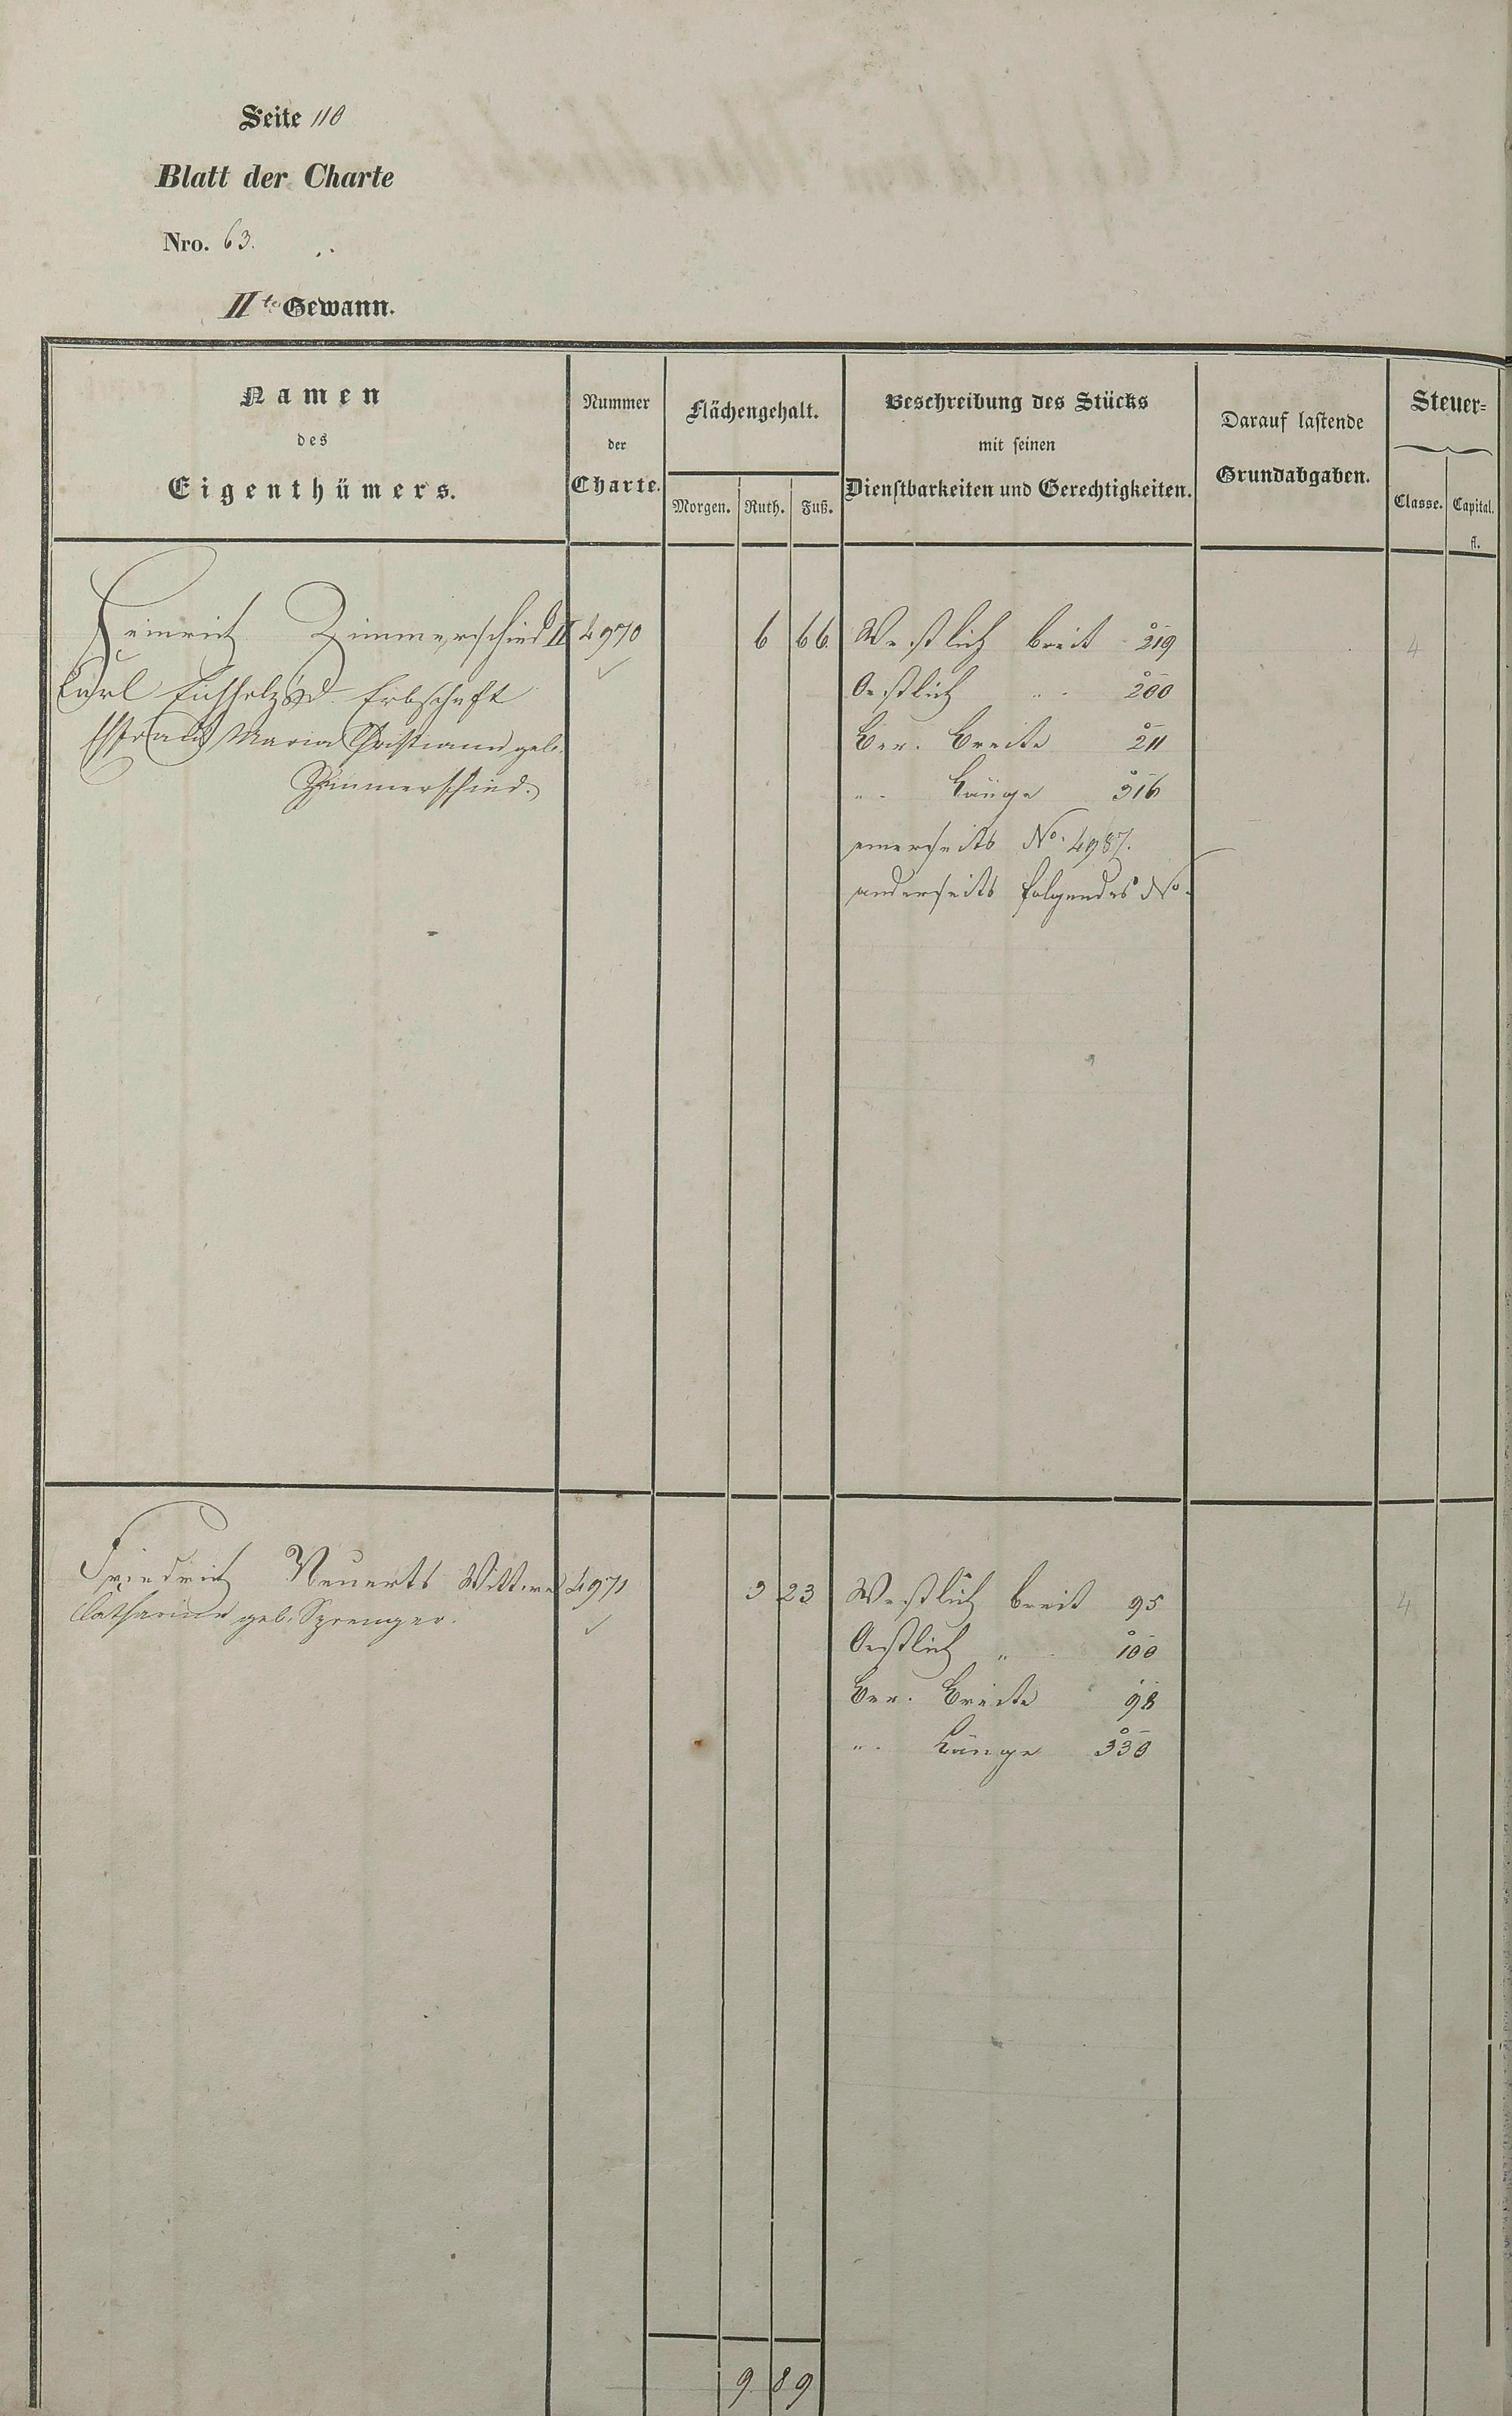 Seite 110
Blatt der Charte
Nro. 63.
IIte Gewann.
Namen
des
Eigenthümers.
Nummer
der
Charte.
Flächengehalt.
Morgen. Ruth. Fuß.
Beschreibung des Stücks
mit seinen
Dienstbarkeiten und Gerechtigkeiten.
Darauf lastende
Grundabgaben.
Steuer=
Classe. Capital.
fl.
Heinrich Zimmerschied II 4970 6 66 Westlich breit 219 4
Carl Eichholz Erbschaft Oestlich " 200
Maria Christiane geb. Ber. Breite 211
Zimmerschied. " Länge 316
einerseits No. 4987.
anderseits folgendes No.
Friedrich Neuerts Wittwe 4971 3 23 Westlich breit 95 4
Catharine geb. Sprenger. Oestlich " 100
Ber. Breite 98
" Länge 330
9 89